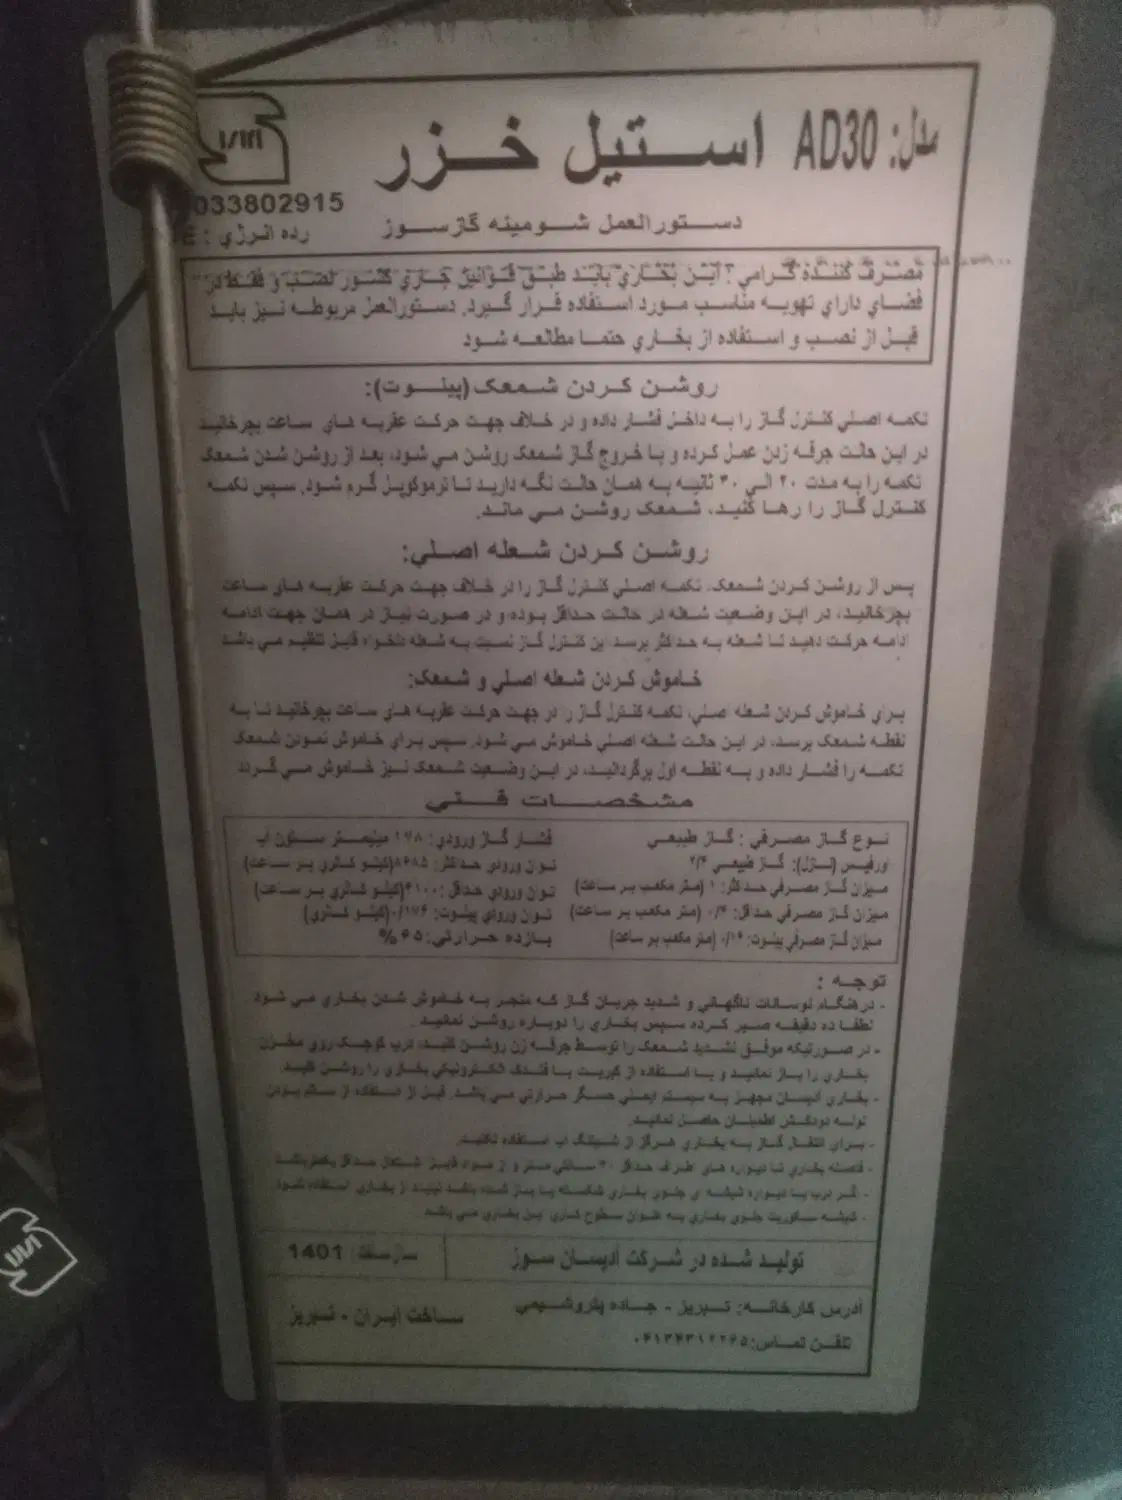 مدل: AD30 استیل خزر
033802915
دستورالعمل شومینه گازسوز
رده انرژي : E
مصرف کننده گرامي؟ این بخاري باید طبق قوانین جاري کشور نصب و فقط در
فضاي داراي تهویه مناسب مورد استفاده قرار گیرد. دستورالعمل مربوطه نیز باید
قبل از نصب و استفاده از بخاري حتما مطالعه شود
روشن کردن شمعک (پیلوت):
تکمه اصلي کنترل گاز را به داخل فشار داده و در خلاف جهت حرکت عقربه هاي ساعت بچرخانید
در این حالت جرقه زدن عمل کرده و با خروج گاز شمعک روشن مي شود، بعد از روشن شدن شمعک
تکمه را به مدت ۲۰ الي ۳۰ ثانیه به همان حالت نگه دارید تا ترموکوپل گرم شود. سپس تکمه
کنترل گاز را رها کنید، شمعک روشن مي ماند.
روشن کردن شعله اصلي:
پس از روشن کردن شمعک، تکمه اصلي کنترل گاز را در خلاف جهت حرکت عقربه هاي ساعت
بچرخانید، در این وضعیت شعله در حالت حداقل بوده و در صورت نیاز در همان جهت ادامه
ادامه حرکت دهید تا شعله به حداکثر برسد این کنترل گاز نسبت به شعله دلخواه قابل تنظیم مي باشد
خاموش کردن شعله اصلي و شمعک:
براي خاموش کردن شعله اصلي، تکمه کنترل گاز را در جهت حرکت عقربه هاي ساعت بچرخانید تا به
نقطه شمعک برسد، در این حالت شعله اصلي خاموش مي شود. سپس براي خاموش نمودن شمعک
تکمه را فشار داده و به نقطه اول برگردانید، در این وضعیت شمعک نیز خاموش مي گردد
مشخصات فني
نوع گاز مصرفي : گاز طبیعي
فشار گاز ورودي: ۱۷۸ میلیمتر ستون آب
اورفیس (نازل): گاز طبیعي ۲/۴
توان ورودي حداکثر: ۸۶۸۵(کیلو کالري بر ساعت)
میزان گاز مصرفي حداکثر: ۱ (متر مکعب بر ساعت)
توان ورودي حداقل: ۴۱۰۰(کیلو کالري بر ساعت)
میزان گاز مصرفي حداقل: ۰/۴ (متر مکعب بر ساعت)
توان ورودي پیلوت: ۰/۱۷۶(کیلو کالري)
میزان گاز مصرفي پیلوت: ۰/۱۶ (متر مکعب بر ساعت)
بازده حرارتي: ۶۵ %
توجه :
- در هنگام نوسانات ناگهاني و شدید جریان گاز که منجر به خاموش شدن بخاري مي شود
لطفا ده دقیقه صبر کرده سپس بخاري را دوباره روشن نمائید.
- در صورتیکه موفق نشدید شمعک را توسط جرقه زن روشن کنید، درب کوچک روي مخزن
بخاري را باز نمائید و با استفاده از کبریت یا فندک الکترونیکي بخاري را روشن کنید.
- بخاري آدیسان مجهز به سیستم ایمني حسگر حرارتي مي باشد. قبل از استفاده از سالم بودن
لوله دودکش اطمینان حاصل نمائید.
- براي انتقال گاز به بخاري هرگز از شیلنگ آب استفاده نکنید.
- فاصله بخاري تا دیواره هاي اطراف حداقل ۳۰ سانتي متر و از مواد قابل اشتعال حداقل یکمتر باشد
- اگر درب یا دیواره شیشه ي جلوي بخاري شکسته یا باز شده باشد نباید از بخاري استفاده شود
- شیشه سکوریت جلوي بخاري به عنوان سطوح کاري این بخاري مي باشد
تولید شده در شرکت آدیسان سوز
سال ساخت: 1401
آدرس کارخانه: تبریز - جاده پتروشیمي
ساخت ایران - تبریز
تلفن تماس: ۰۴۱۳۴۳۱۲۲۶۵